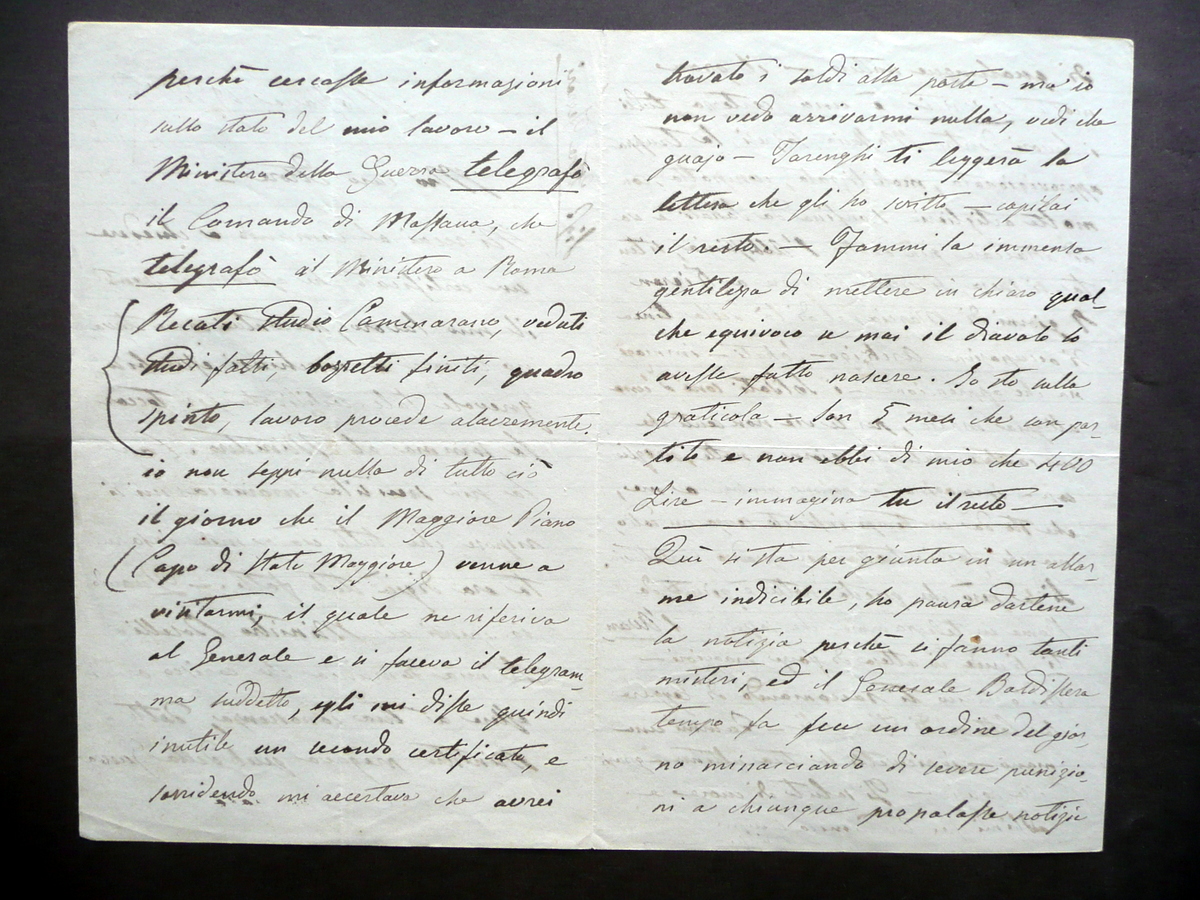 perchè cercasse informazioni
sullo stato del mio lavoro – il
Ministero della Guerra telegrafò
il Comando di Massaua, che
telegrafò al Ministero a Roma
Recati studio Cammarano, veduti
studi fatti, bozzetti finiti, quadro
spinto, lavoro procede alacremente.
io non seppi nulla di tutto ciò
il giorno che il Maggiore Piano
(Capo di Stato Maggiore) venne a
visitarmi, il quale ne riferiva
al Generale e si faceva il telegram-
ma suddetto, egli mi disse quindi
inutile un secondo certificato, e
sorridendo mi accertava che avrei
trovato i soldi alla posta – ma io
non vedo arrivarmi nulla, vedi che
guajo – Tarenghi ti leggerà la
lettera che gli ho scritto – capirai
il resto – Fammi la immensa
gentilezza di mettere in chiaro qual-
che equivoco se mai il diavolo lo
avesse fatto nascere. Io sto sulla
graticola – Son 5 mesi che son par-
tito e non ebbi di mio che 400
Lire – immagina tu il resto –
Quì si sta per giunta in un allar-
me indicibile, ho paura dartene
la notizia perchè si fanno tanti
misteri, ed il Generale Baldissera
tempo fa fece un ordine del gior-
no minacciando di severe punizio-
ni a chiunque propalasse notizie